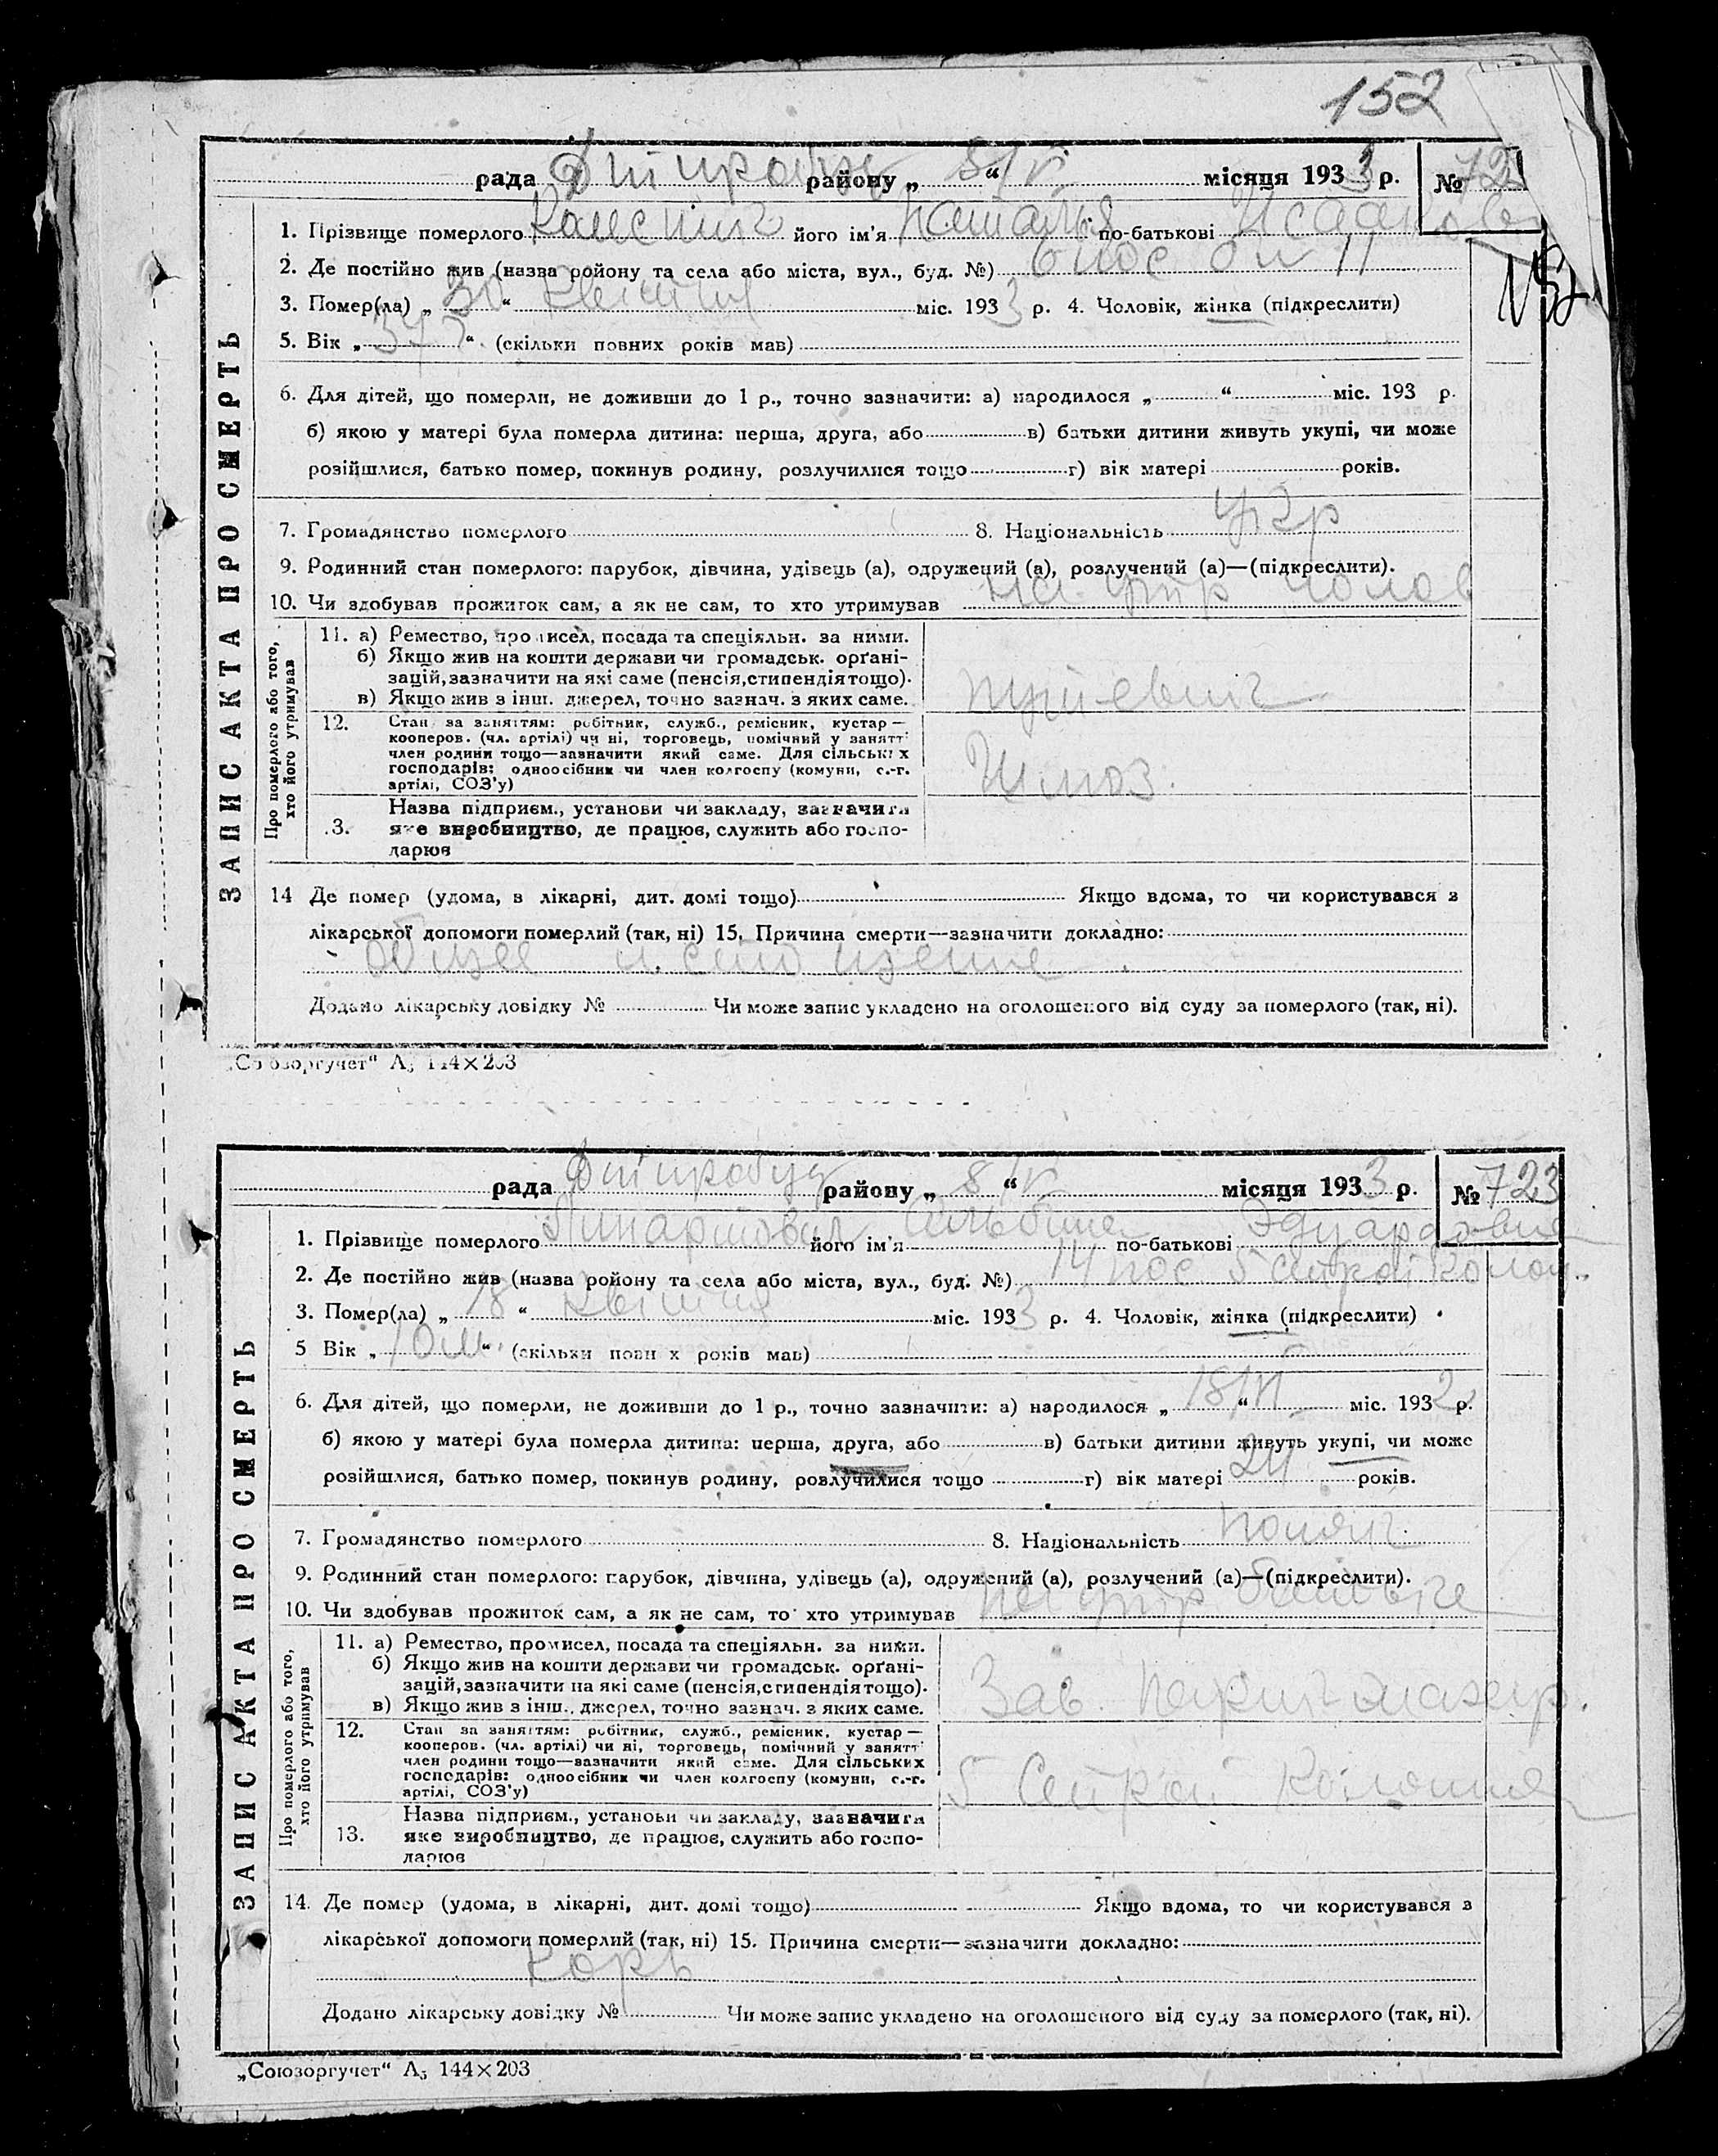 152
рада Дніпробуд району „ 8/V “ місяця 1933 р. № 722
1. Прізвище померлого його ім'я Наталья по-батькові Исааковна
2. Де постійно жив (назва ройону та села або міста, вул., буд. №) 6 пос 11
3. Помер(ла) „ 30 “ квітня міс. 1933 р. 4. Чоловік, жінка (підкреслити)
5. Вік „ 37 “ (скільки повних років мав)
6. Для дітей, що померли, не доживши до 1 р., точно зазначити: а) народилося „ “ міс. 193 р.
б) якою у матері була померла дитина: перша, друга, або в) батьки дитини живуть укупі, чи може
розійшлися, батько помер, покинув родину, розлучилися тощо г) вік матері років.
7. Громадянство померлого 8. Національність Укр
9. Родинний стан померлого: парубок, дівчина, удівець (а), одружений (а), розлучений (а)—(підкреслити).
10. Чи здобував прожиток сам, а як не сам, то хто утримував на утр чолов
ЗАПИС АКТА ПРО СМЕРТЬ
Про померлого або того, хто його утримував
11. а) Ремество, промисел, посада та спеціяльн. за ними.
б) Якщо жив на кошти держави чи громадськ. орґані-
зацій, зазначити на які саме (пенсія, стипендія тощо).
в) Якщо жив з інш. джерел, точно зазнач. з яких саме.
12. Стан за заняттям: робітник, служб., ремісник, кустар —
кооперов. (чл. артілі) чи ні, торговець, помічний у занятті
член родини тощо—зазначити який саме. Для сільських
господарів: одноосібник чи член колгоспу (комуни, с.-г.
артілі, СОЗ'у)
Шлюз
Назва підприєм., установи чи закладу, зазначити
13. яке виробництво, де працює, служить або госпо-
дарює
14 Де помер (удома, в лікарні, дит. домі тощо) Якщо вдома, то чи користувався з
лікарської допомоги померлий (так, ні) 15. Причина смерти—зазначити докладно:
Общее истощение
Додано лікарську довідку № Чи може запис укладено на оголошеного від суду за померлого (так, ні).
„Союзоргучет“ А5 144×203
рада Дніпробуд району „ 8/V “ місяця 1933 р. № 723
1. Прізвище померлого його ім'я Альбіна по-батькові Эдуардовна
2. Де постійно жив (назва ройону та села або міста, вул., буд. №) 14 пос 5 колон.
3. Помер(ла) „ 18 “ квітня міс. 1933 р. 4. Чоловік, жінка (підкреслити)
5 Вік „ 10 м. “ (скільки повних років мав)
6. Для дітей, що померли, не доживши до 1 р., точно зазначити: а) народилося „ 18/VI “ міс. 1932 р.
б) якою у матері була померла дитина: перша, друга, або в) батьки дитини живуть укупі, чи може
розійшлися, батько помер, покинув родину, розлучилися тощо г) вік матері 24 років.
7. Громадянство померлого 8. Національність поляк
9. Родинний стан померлого: парубок, дівчина, удівець (а), одружений (а), розлучений (а)—(підкреслити).
10. Чи здобував прожиток сам, а як не сам, то хто утримував на утр батьки
ЗАПИС АКТА ПРО СМЕРТЬ
Про померлого або того, хто його утримував
11. а) Ремество, промисел, посада та спеціяльн. за ними.
б) Якщо жив на кошти держави чи громадськ. орґані-
зацій, зазначити на які саме (пенсія, стипендія тощо).
в) Якщо жив з інш. джерел, точно зазнач. з яких саме.
Зав.
12. Стан за заняттям: робітник, служб., ремісник, кустар —
кооперов. (чл. артілі) чи ні, торговець, помічний у занятті
член родини тощо—зазначити який саме. Для сільських
господарів: одноосібник чи член колгоспу (комуни, с.-г.
артілі, СОЗ'у)
5 колония
Назва підприєм., установи чи закладу, зазначити
13. яке виробництво, де працює, служить або госпо-
дарює
14. Де помер (удома, в лікарні, дит. домі тощо) Якщо вдома, то чи користувався з
лікарської допомоги померлий (так, ні) 15. Причина смерти—зазначити докладно:
Корь
Додано лікарську довідку № Чи може запис укладено на оголошеного від суду за померлого (так, ні).
„Союзоргучет“ А5 144×203